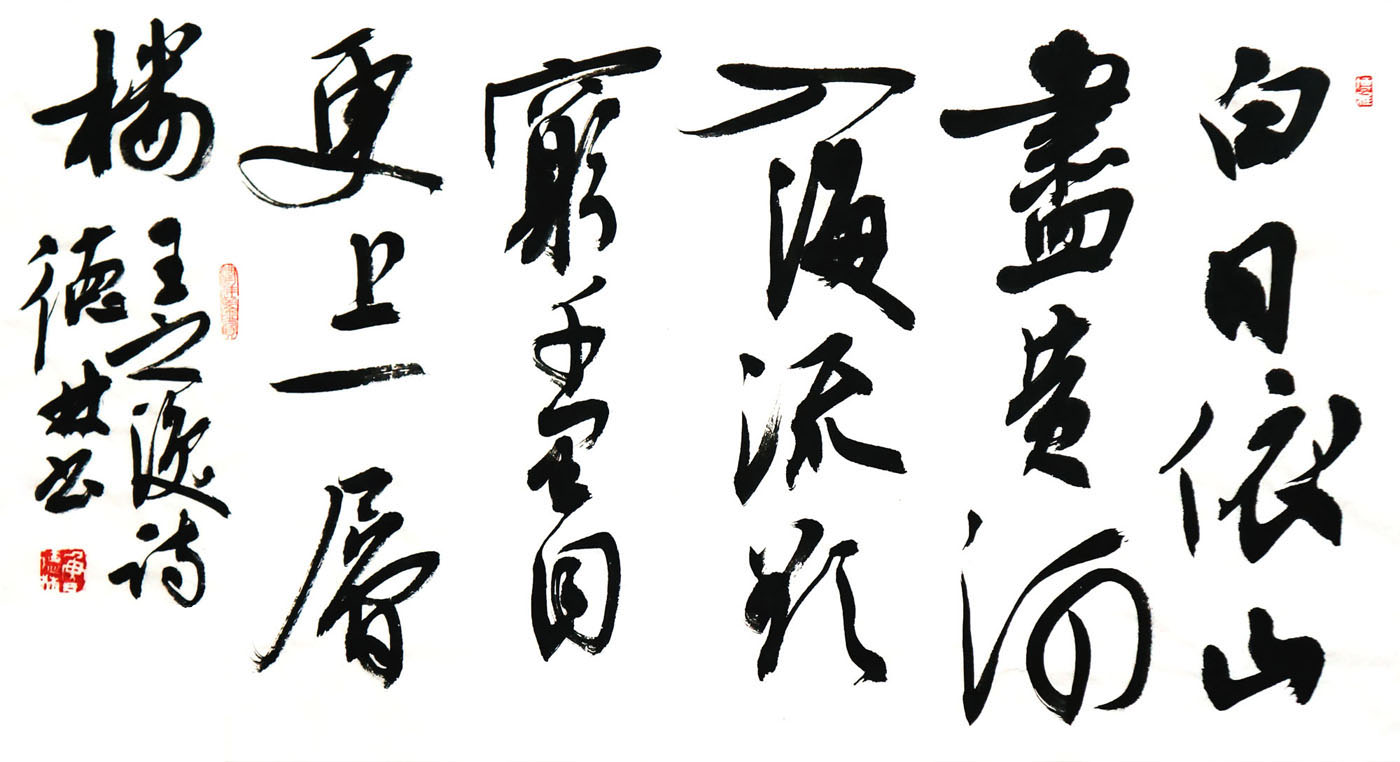 白日依山
盡黄河
入海流欲
窮千里目
更上一層
楼
王之渙诗
德林书